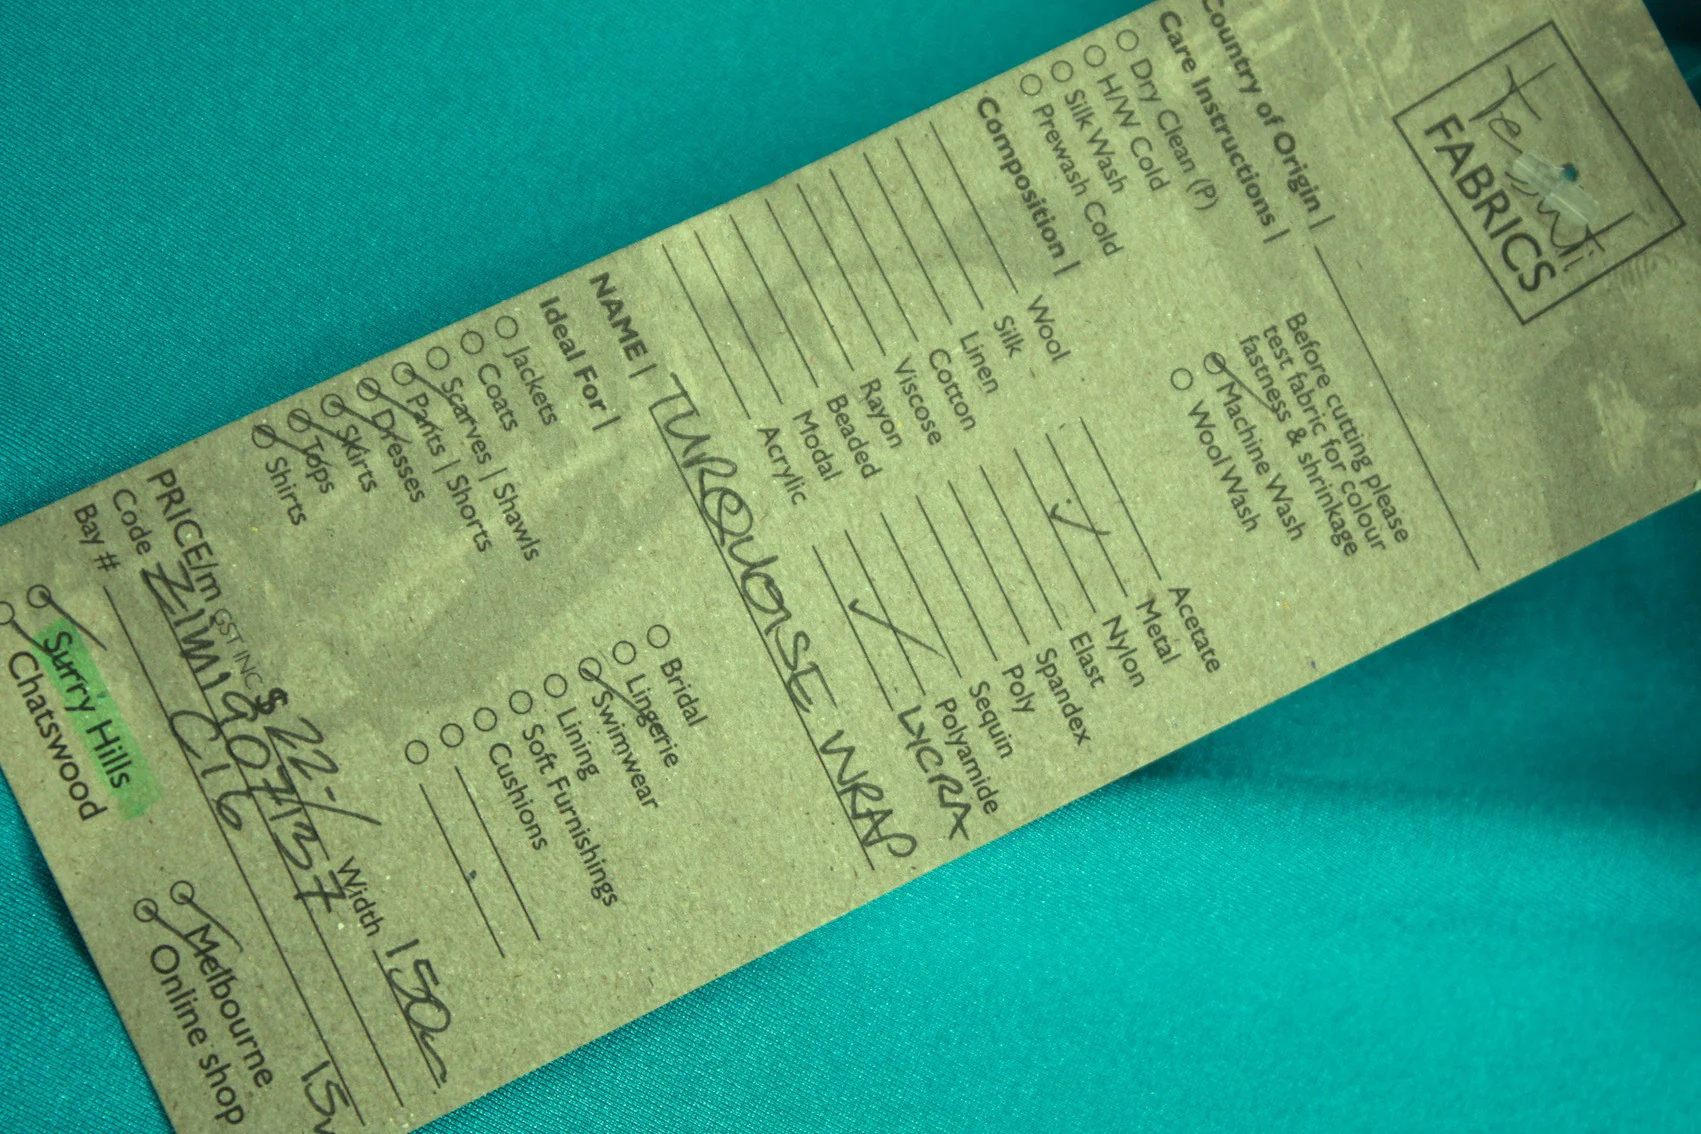 Tessuti
FABRICS
Country of Origin |
Care Instructions |
Dry Clean (P)
H/W Cold
Silk Wash
Prewash Cold
Before cutting please
test fabric for colour
fastness & shrinkage
Machine Wash
Wool Wash
Composition |
Wool
Silk
Linen
Cotton
Viscose
Rayon
Beaded
Modal
Acrylic
Acetate
Metal
Nylon
Elast
Spandex
Poly
Sequin
Polyamide
LYCRA
NAME | TURQUOISE WRAP
Ideal For |
Jackets
Coats
Scarves | Shawls
Pants | Shorts
Dresses
Skirts
Tops
Shirts
Bridal
Lingerie
Swimwear
Lining
Soft Furnishings
Cushions
PRICE/m GST INC $22-/ Width 150
Code ZIM1907137
Bay # C16
Surry Hills
Chatswood
Melbourne
Online shop